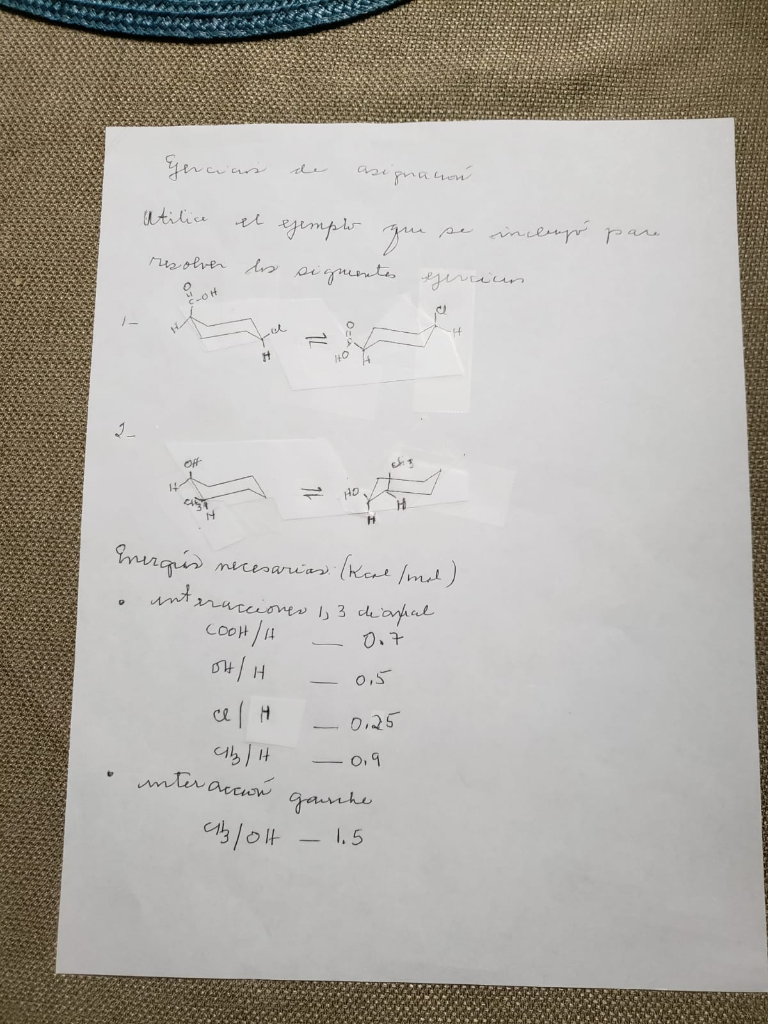 Ejercicios de asignación
Utilice el ejemplo que se incluyó para
resolver los siguientes ejercicios
1-
O
C-OH
H
Cl
H
⇌
Cl
H
O
C
HO
H
2-
OH
H
CH3
H
⇌
CH3
HO
H
H
Energías necesarias: (Kcal/mol)
• interacciones 1,3 diaxial
COOH/H — 0.7
OH/H — 0.5
Cl/H — 0.25
CH3/H — 0.9
• interacción gauche
CH3/OH — 1.5